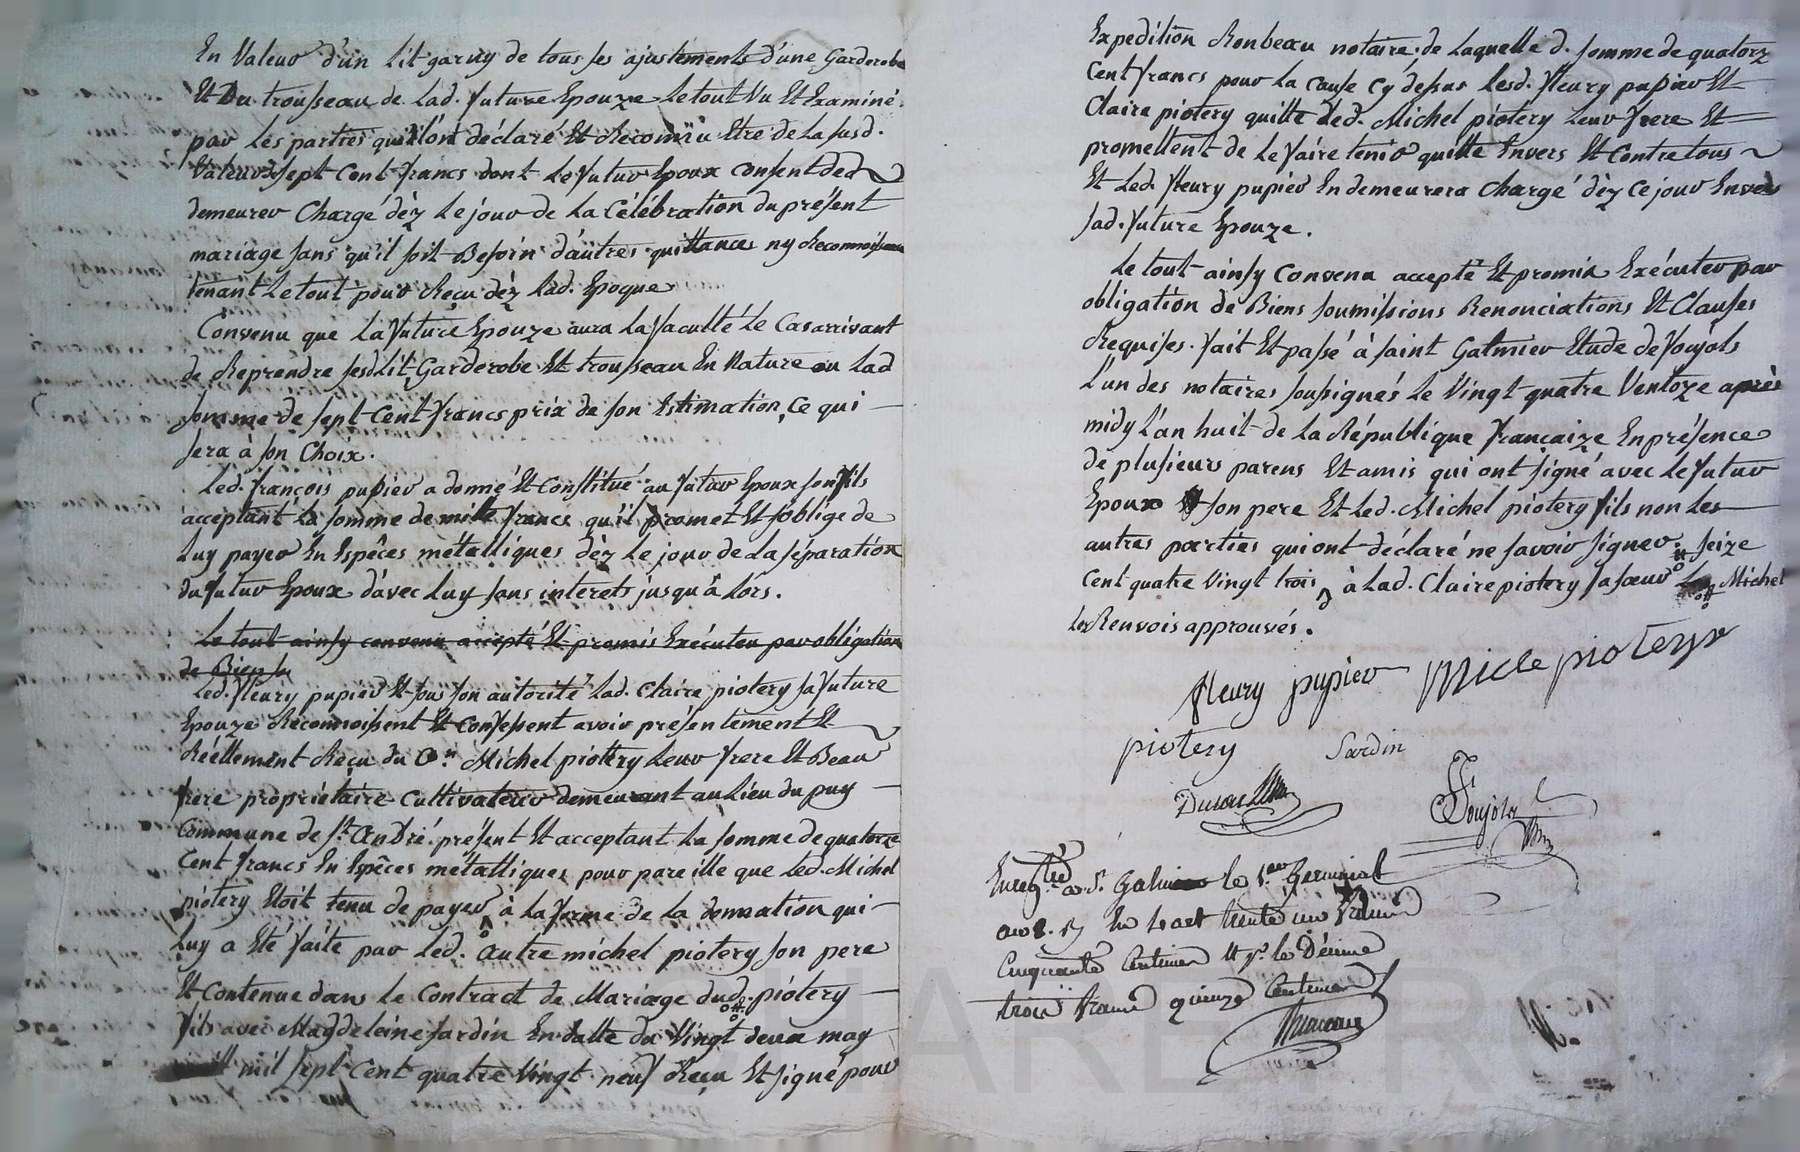 En Valeur d'un Lit garny de tous ses ajustements d'une Garderobe
Et Du trousseau de Lad. future Epouze Le tout Vu Et Examiné
par Les parties qu'ils ont déclaré Et Reconnu Etre de La susd.
Valeur de sept Cent francs dont Le futur Epoux consent de
demeurer Chargé dèz Le jour de La Célébration du présent
mariage sans qu'il soit Besoin d'autres quittances ny Reconnoissance
tenant Le tout pour Reçu dèz Lad. Epoque
Convenu que La future Epouze aura La faculté Le Cas arrivant
de Reprendre sesd Lit, Garderobe Et trousseau En Nature ou Lad
somme de sept Cent francs prix de son Estimation, Ce qui
sera à son Choix.
Led. françois pupier a donné Et Constitué au futur Epoux son fils
acceptant La somme de mille francs qu'il promet Et s'oblige de
Luy payer En Espêces métalliques dèz Le jour de La séparation
du futur Epoux d'avec Luy sans interets jusqu'à Lôrs.
Le tout ainsy convenu accepté Et promis Exécuter par obligation
de Biens su
Led. fleury pupier Et sous son autorité Lad. Claire piotery sa future
Epouze Reconnoissent Et Confessent avoir présentement Et
Réellement Reçu du C.n Michel piotery Leur frere Et Beau
frere propriétaire Cultivateur demeurant au Lieu du puy
Commune de S.t André présent Et acceptant La somme de quatorze
Cent francs En Espêces métalliques pour pareille que Led. Michel
piotery Etoit tenu de payer à La forme de La donnation qui
Luy a Eté faite par Led. autre michel piotery son pere
Et Contenue dans Le Contract de Mariage dud. piotery
fils avec Magdeleine sardin En datte du Vingt deux may
mil sept Cent quatre Vingt neuf Reçu Et signé pour
Expedition Ronbeau notaire, de Laquelle d. somme de quatorz
Cent francs pour La cause Cy dessus Lesd. fleury pupier Et
Claire piotery quitte Led. Michel piotery Leur frere Et
promettent de Le faire tenir quitte Envers Et Contre tous
Et Led. fleury pupier En demeurera Chargé dèz Ce jour Envers
sad. future Epouze.
Le tout ainsy Convenu accepté Et promis Exécuter par
obligation de Biens soumissions Renonciations Et Clauses
Requises. fait Et passé à saint Galmier Etude de soujols
L'un des notaires soussignés Le Vingt quatre Ventoze après
midy L'an huit de La République françaize En présence
de plusieurs parens Et amis qui ont signé avec Le futur
Epoux son pere Et Led. Michel piotery fils non Les
autres parties qui ont déclaré ne savoir signer. seize
Cent quatre Vingt trois à Lad. Claire piotery sa sœur Michel
Les Renvois approuvés.
fleury pupier Micle piotery
piotery Sardin
Soujols
Enreg.tré à S.t Galmier le 1.er Germinal
an 8. En trente un francs
Cinquante Centimes Et p.r le Décime
trois francs quinze Centimes